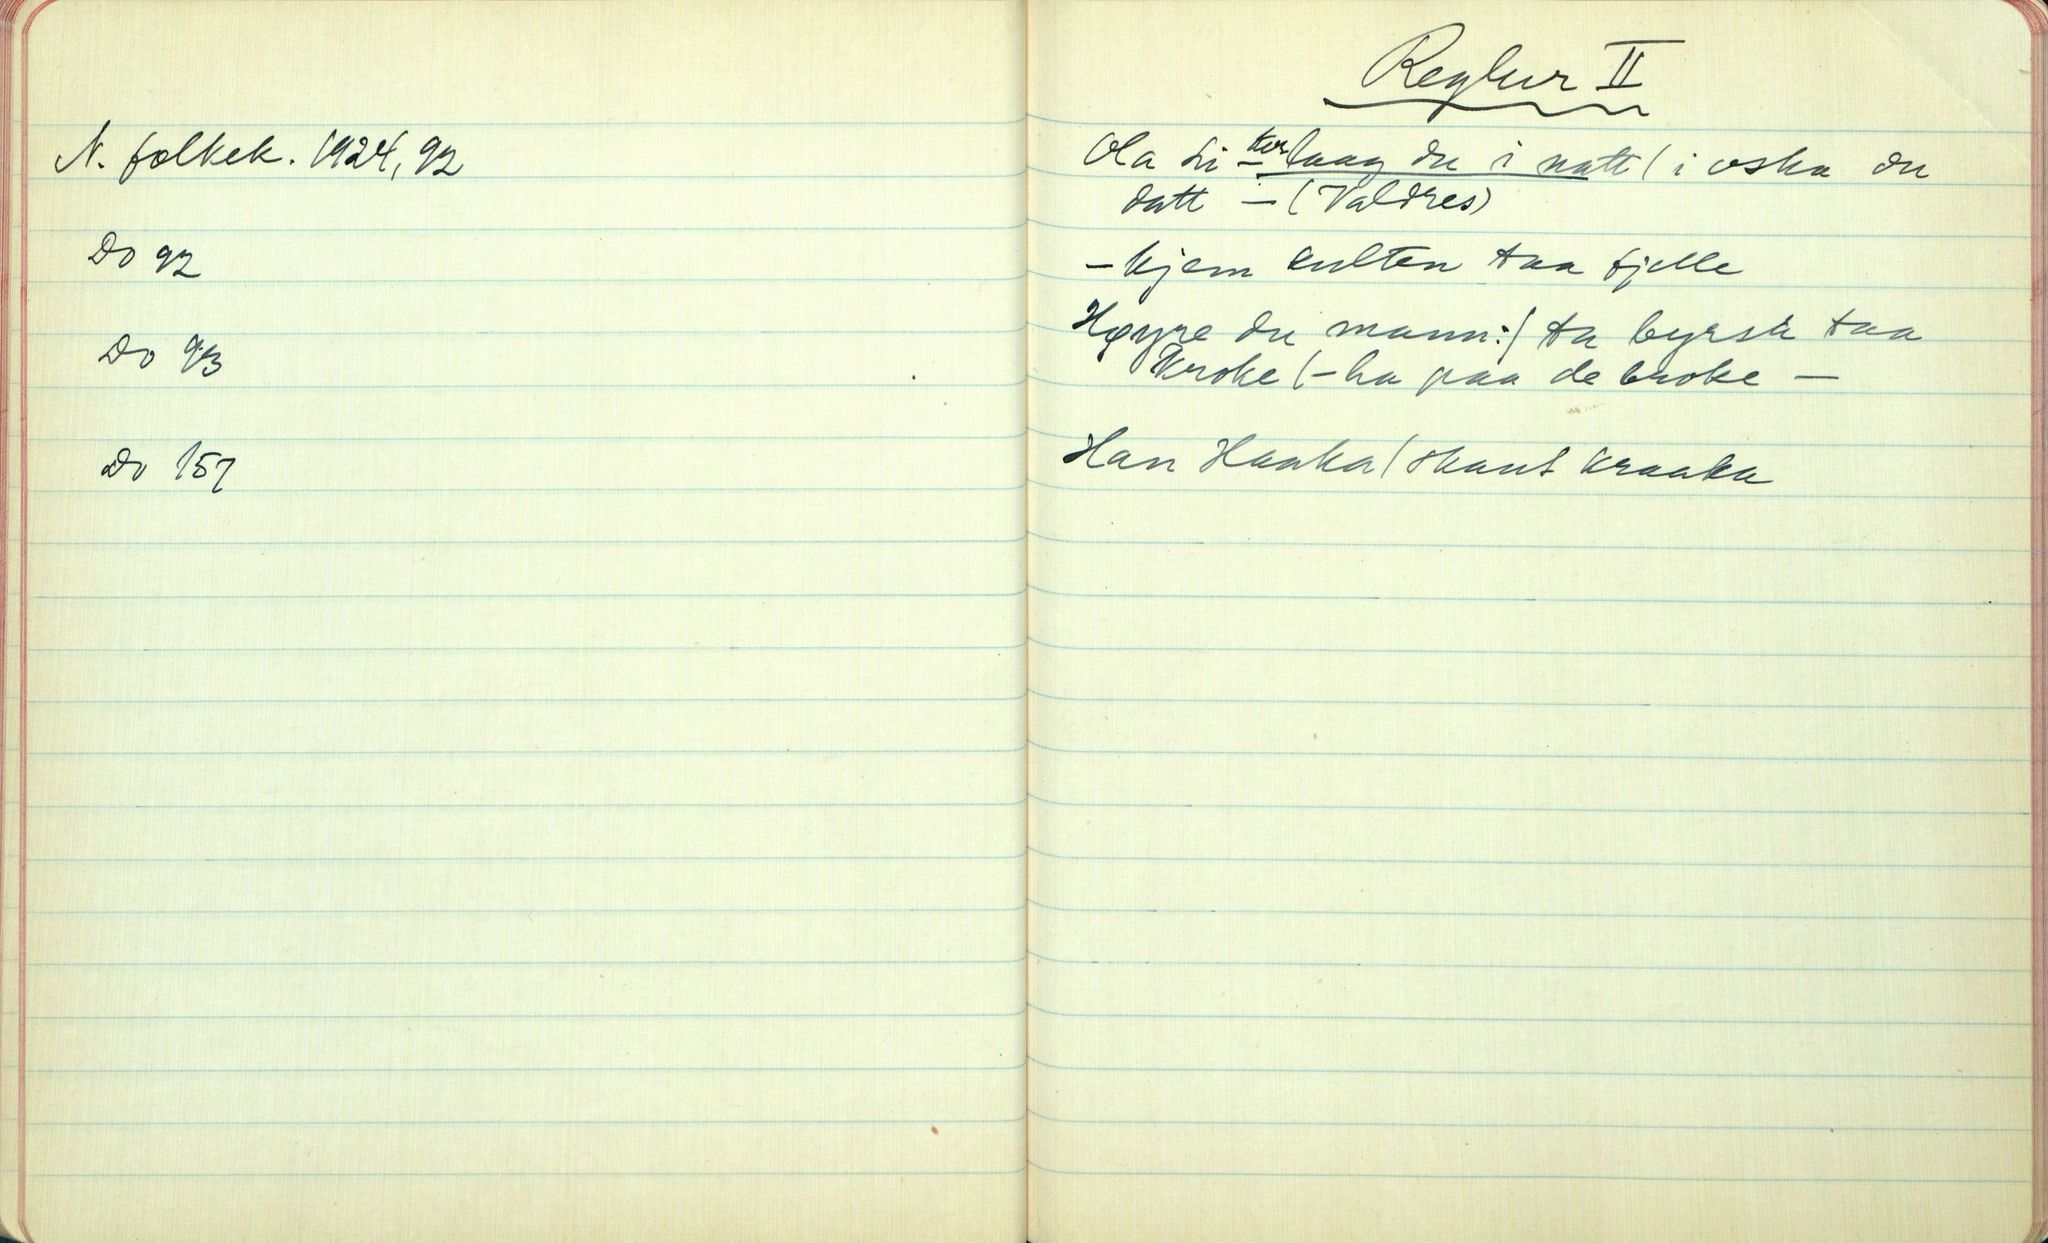 N. folkek. 1924, 92
Do 92
Do 93
Do 157
Reglur II
Ola Li – kor laag du i natt / i oska du
datt – (Valdres)
– kjem kulten taa fjelle
Høyre du mann: / ta byrsa taa
kroke / – ha paa de broke –
Han Haaka / skaut kraaka